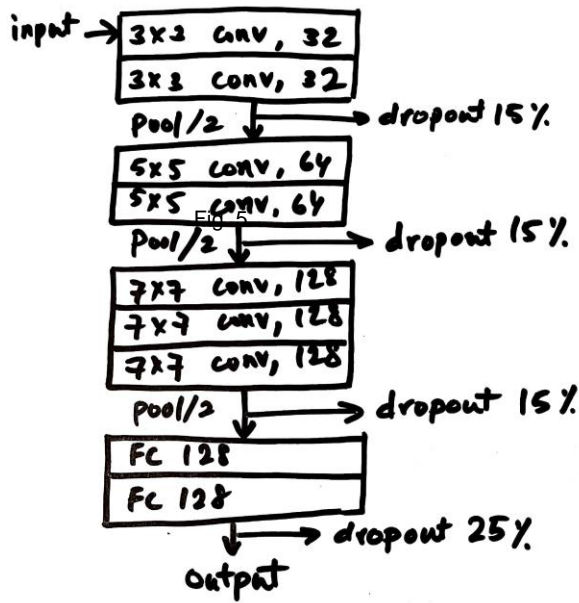 input → 3x3 conv, 32
3x3 conv, 32
Pool/2 dropout 15%
5x5 conv, 64
5x5 conv, 64
Fig. 5
Pool/2 dropout 15%
7x7 conv, 128
7x7 conv, 128
7x7 conv, 128
pool/2 dropout 15%
FC 128
FC 128
dropout 25%
output